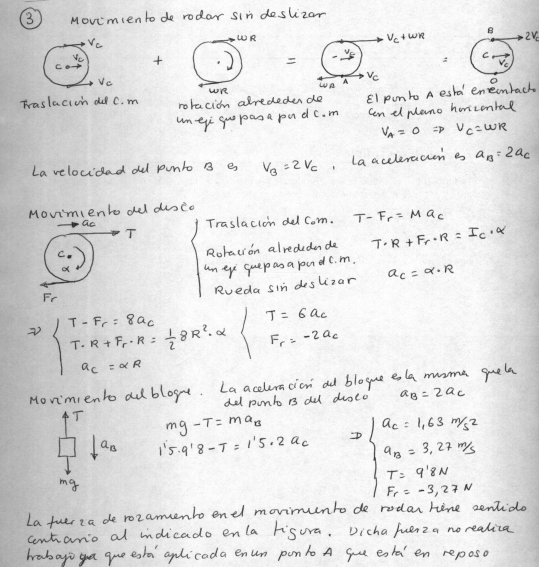 ③ Movimiento de rodar sin deslizar
Vc ωR Vc+ωR B 2Vc
c Vc + = Vc = c Vc
Vc ωR ωR A Vc O
Traslación del c.m rotación alrededor de un eje que pasa por el c.m El punto A está en contacto con el plano horizontal
VA = 0 ⇒ Vc = ωR
La velocidad del punto B es VB = 2Vc, La aceleración es aB = 2ac
Movimiento del disco
ac
T
c
α
Fr
Traslación del c.m. T - Fr = M ac
Rotación alrededor de un eje que pasa por el c.m. T·R + Fr·R = Ic·α
Rueda sin deslizar ac = α·R
⇒ T - Fr = 8ac T = 6ac
T·R + Fr·R = 1/2 8R²·α Fr = -2ac
ac = αR
Movimiento del bloque. La aceleración del bloque es la misma que la
del punto B del disco aB = 2ac
T
aB
mg
mg - T = maB
1'5·9'8 - T = 1'5·2ac
⇒ ac = 1,63 m/s2
aB = 3,27 m/s
T = 9'8N
Fr = -3,27 N
La fuerza de rozamiento en el movimiento de rodar tiene sentido
contrario al indicado en la figura. Dicha fuerza no realiza
trabajo ya que está aplicada en un punto A que está en reposo